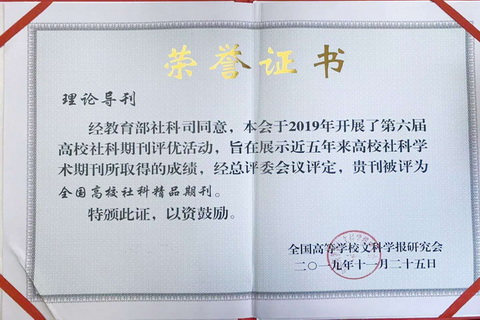 荣誉证书
理论导刊
经教育部社科司同意，本会于2019年开展了第六届
高校社科期刊评优活动，旨在展示近五年来高校社科学
术期刊所取得的成绩，经总评委会议评定，贵刊被评为
全国高校社科精品期刊。
特颁此证，以资鼓励。
全国高等学校文科学报研究会
二〇一九年十一月二十五日